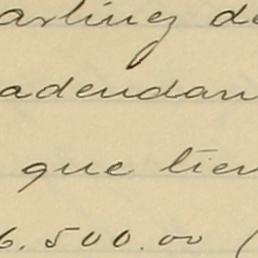 arling de
adendan
que tien
6.500.00 (